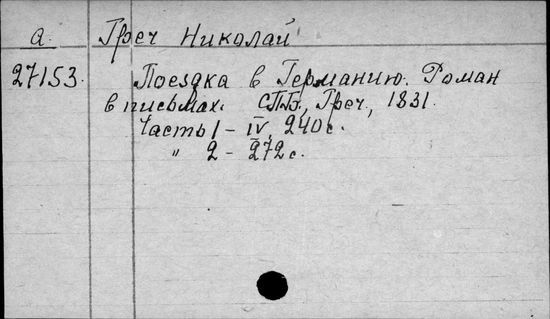 а. Греч Николай
27153. Поездка в Германию. Роман
в письмах. СПБ, Греч, 1831.
Часть 1 – IV, 240 с.
" 2 – 272 с.